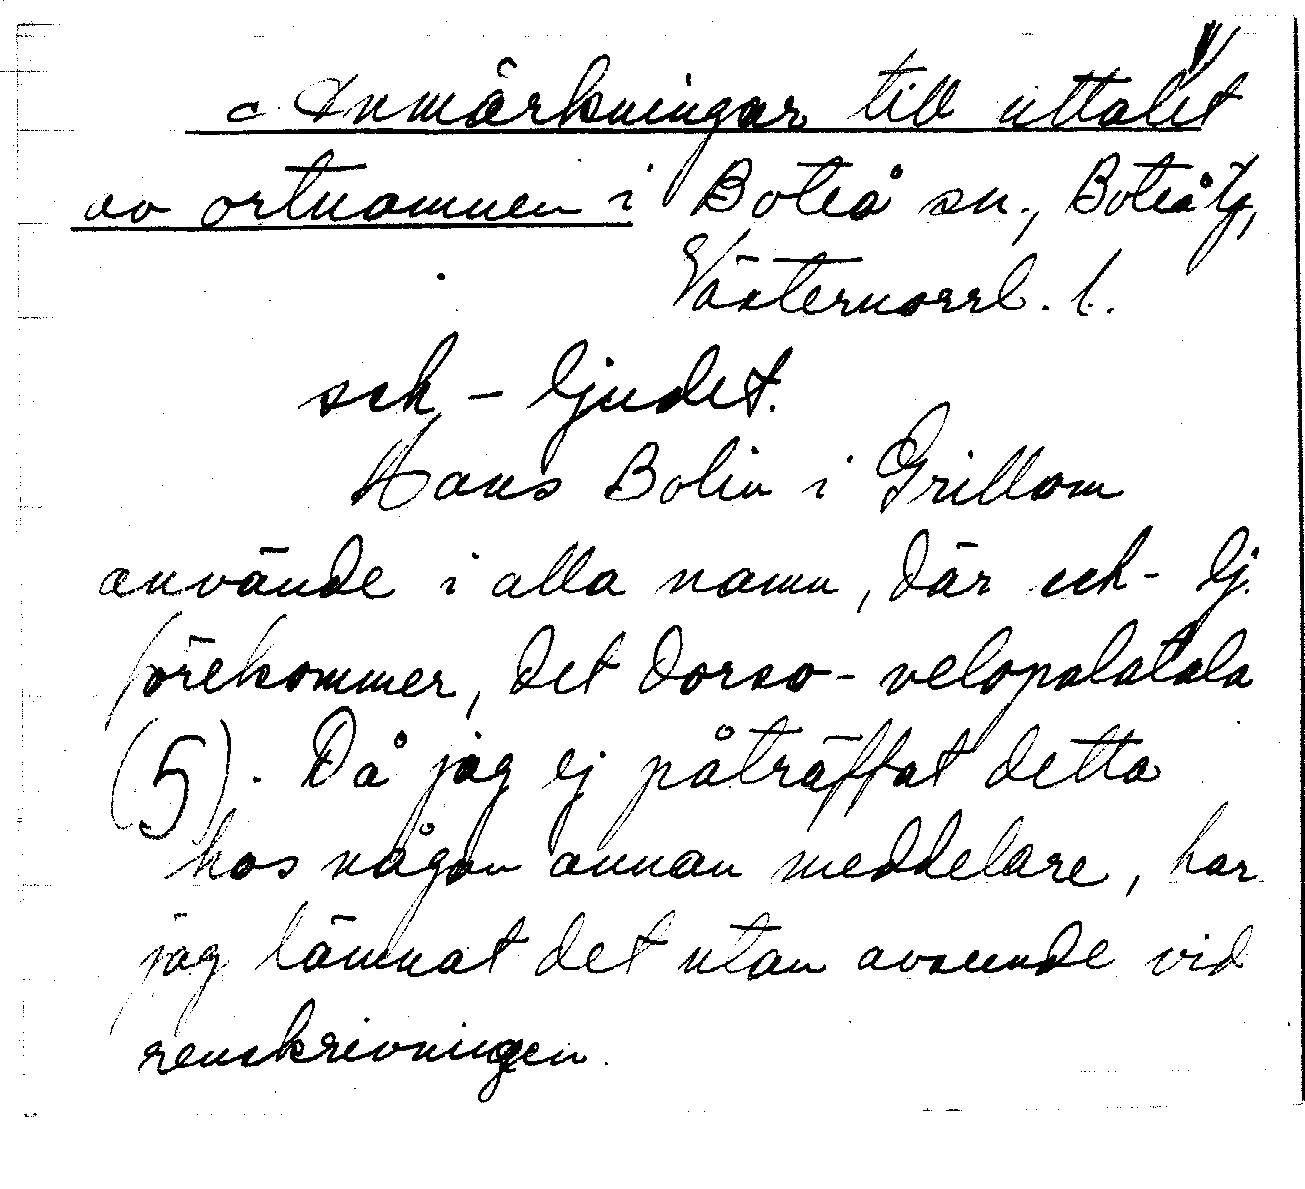 Anmärkningar till uttalet
av ortnamnen i Boteå sn., Boteå tg,
Västernorrl. l.
sch - ljudet.
Hans Bolin i Grillom
använde i alla namn, där sch- lj.
förekommer, det dorso-velopalatala
(ʃ). Då jag ej påträffat detta
hos någon annan meddelare, har
jag lämnat det utan avseende vid
renskrivningen.